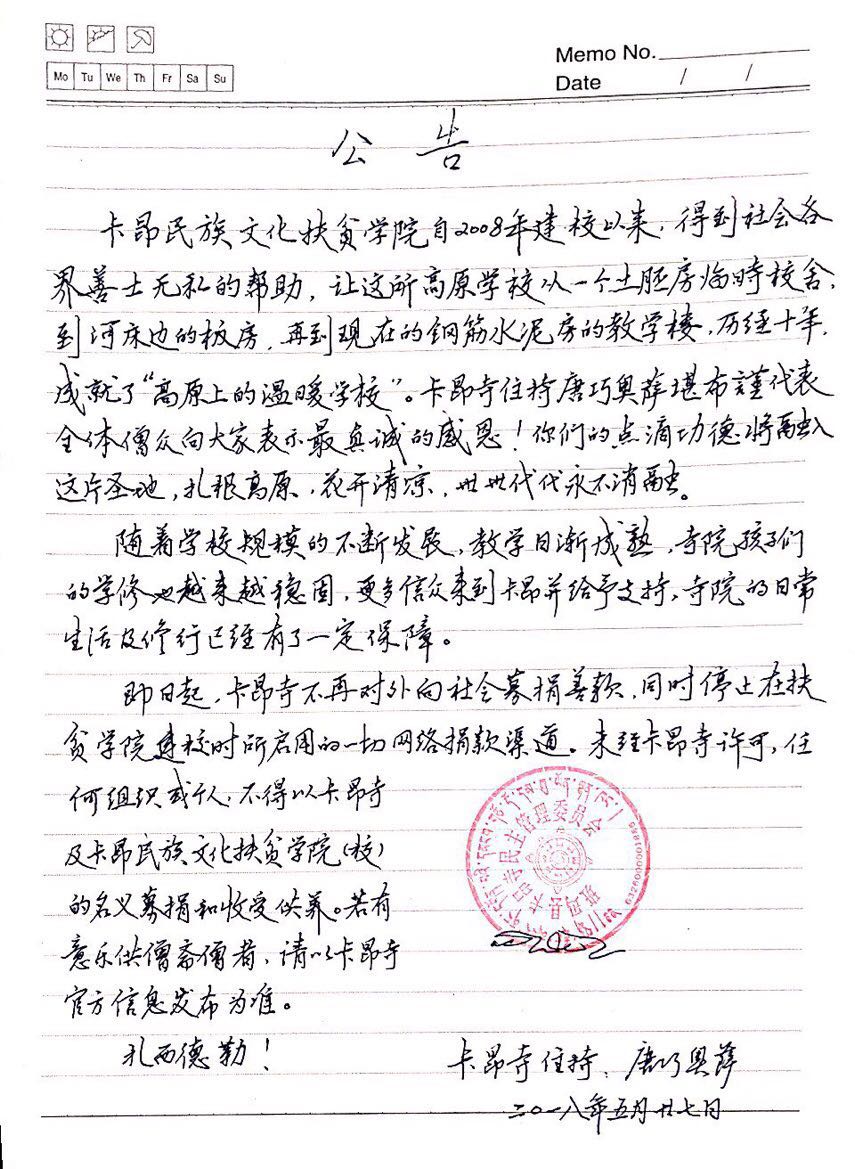 Memo No.
Mo Tu We Th Fr Sa Su
Date / /
公 告
卡昂民族文化扶贫学院自2008年建校以来，得到社会各
界善士无私的帮助，让这所高原学校从一个土胚房临时校舍，
到河床边的板房，再到现在的钢筋水泥房的教学楼，历经十年，
成就了“高原上的温暖学校”。卡昂寺住持唐巧奥萨堪布謹代表
全体僧众向大家表示最真诚的感恩！你们的点滴功德将融入
这片圣地，扎根高原，花开清凉，世世代代永不消融。
随着学校规模的不断发展，教学日渐成熟，寺院孩子们
的学修也越来越稳固，更多信众来到卡昂并给予支持，寺院的日常
生活及修行已经有了一定保障。
即日起，卡昂寺不再对外向社会募捐善款，同时停止在扶
贫学院建校时所启用的一切网络捐款渠道。未经卡昂寺许可，任
何组织或个人，不得以卡昂寺
及卡昂民族文化扶贫学院（校）
的名义募捐和收受供养。若有
意乐供僧斋僧者，请以卡昂寺
官方信息发布为准。
扎西德勒！
班玛县卡昂寺民主管理委员会
卡昂寺住持：唐巧奥萨
二〇一八年五月廿七日